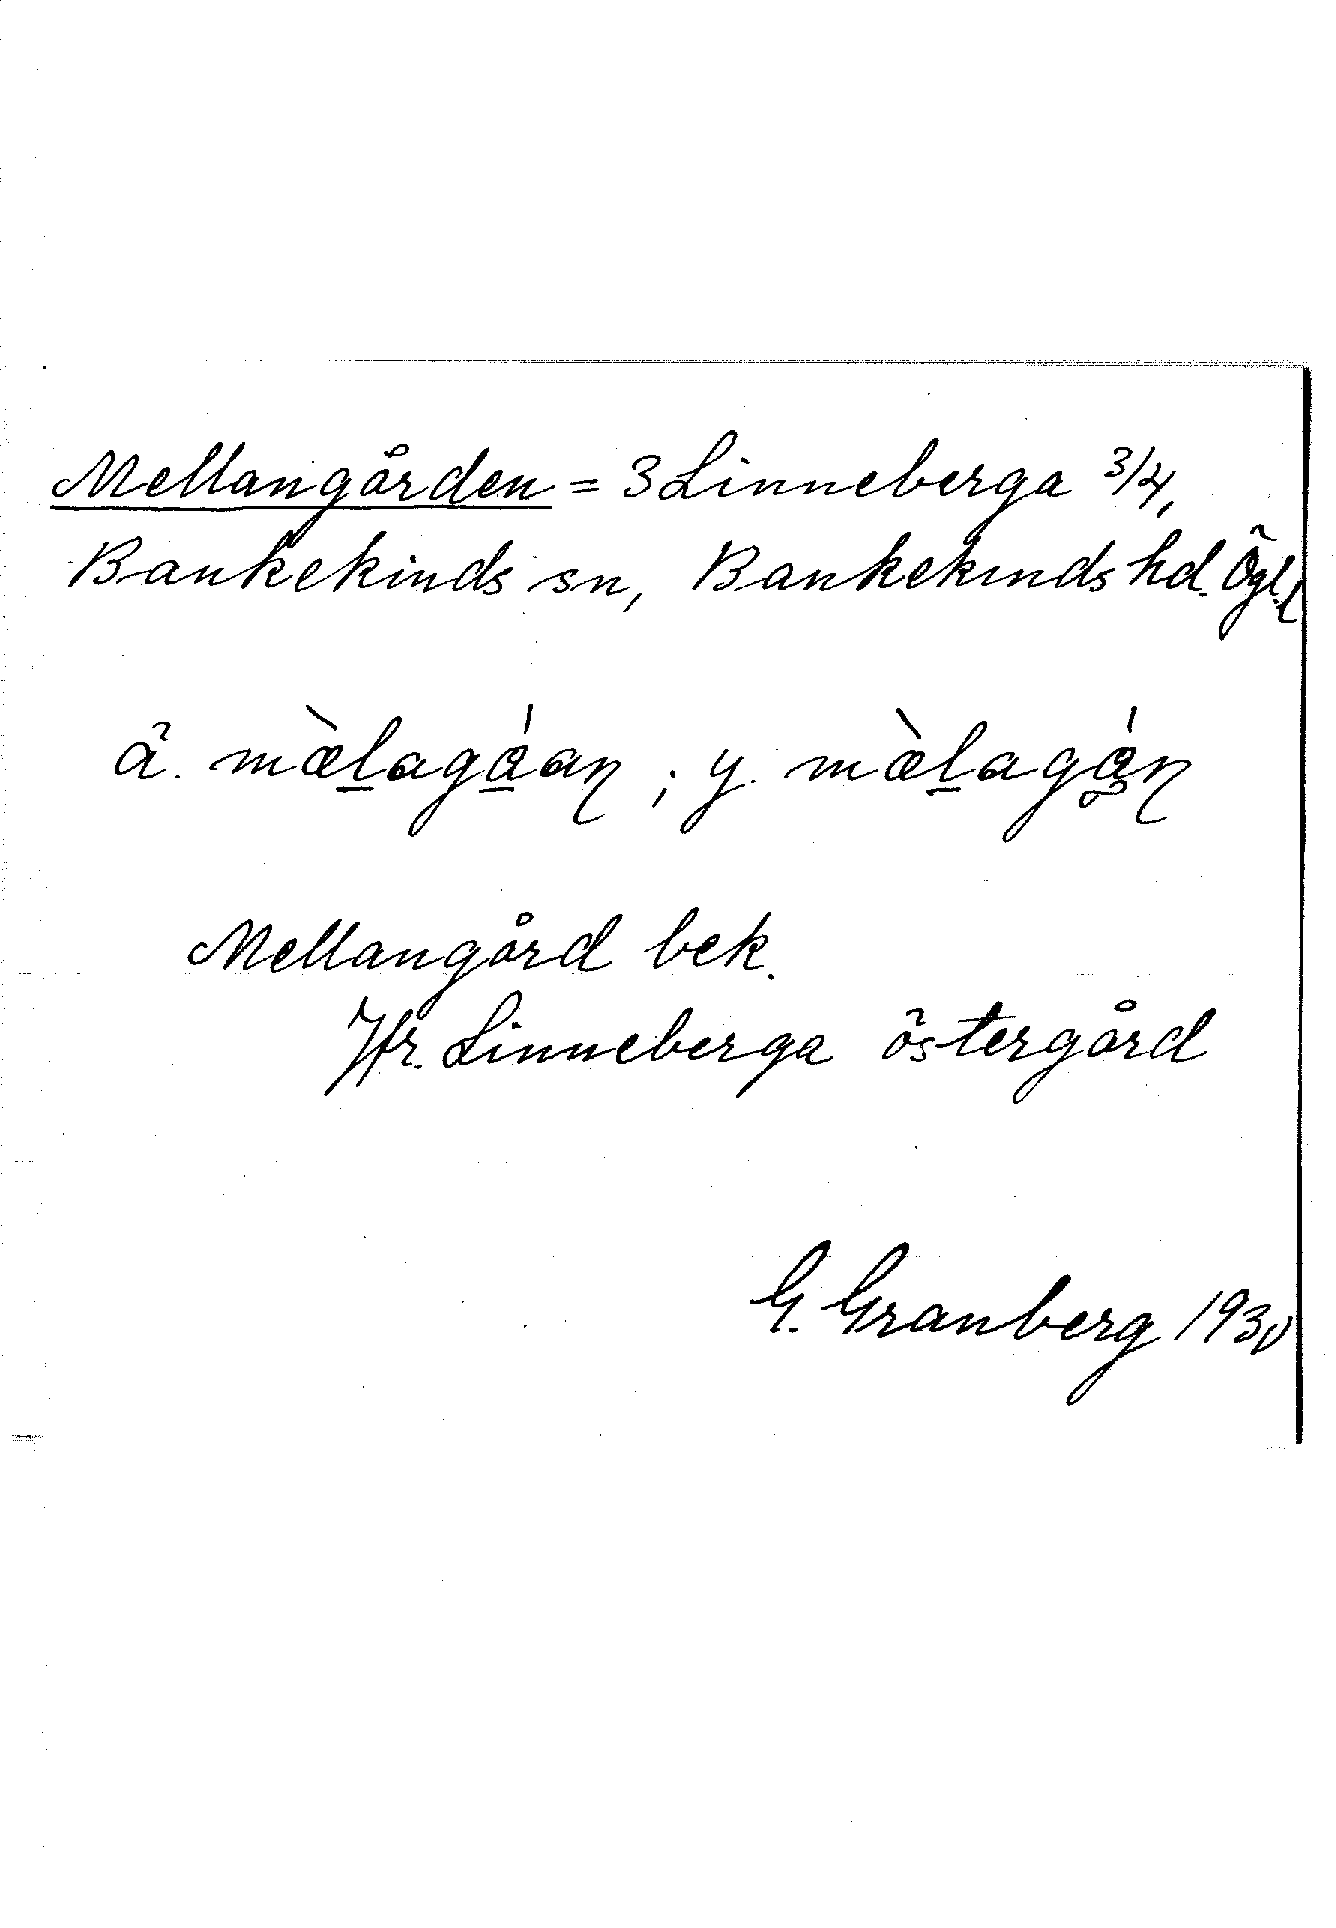 Mellangården = 3 Linneberga 3/4,
Bankekinds sn, Bankekinds hd. Ögl.
ä. mæ̀l̲agá̲an ; y. mæ̀l̲agán
Mellangård bek.
Jfr. Linneberga östergård
G. Granberg 1930